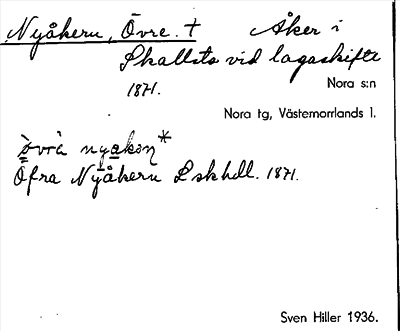 Nyåkern, Övre. † Åker i
Skallsta vid lagaskifte
1871. Nora s:n
Nora tg, Västernorrlands l.
nyakọn*
Öfra Nyåkern L skhdl. 1871.
Sven Hiller 1936.